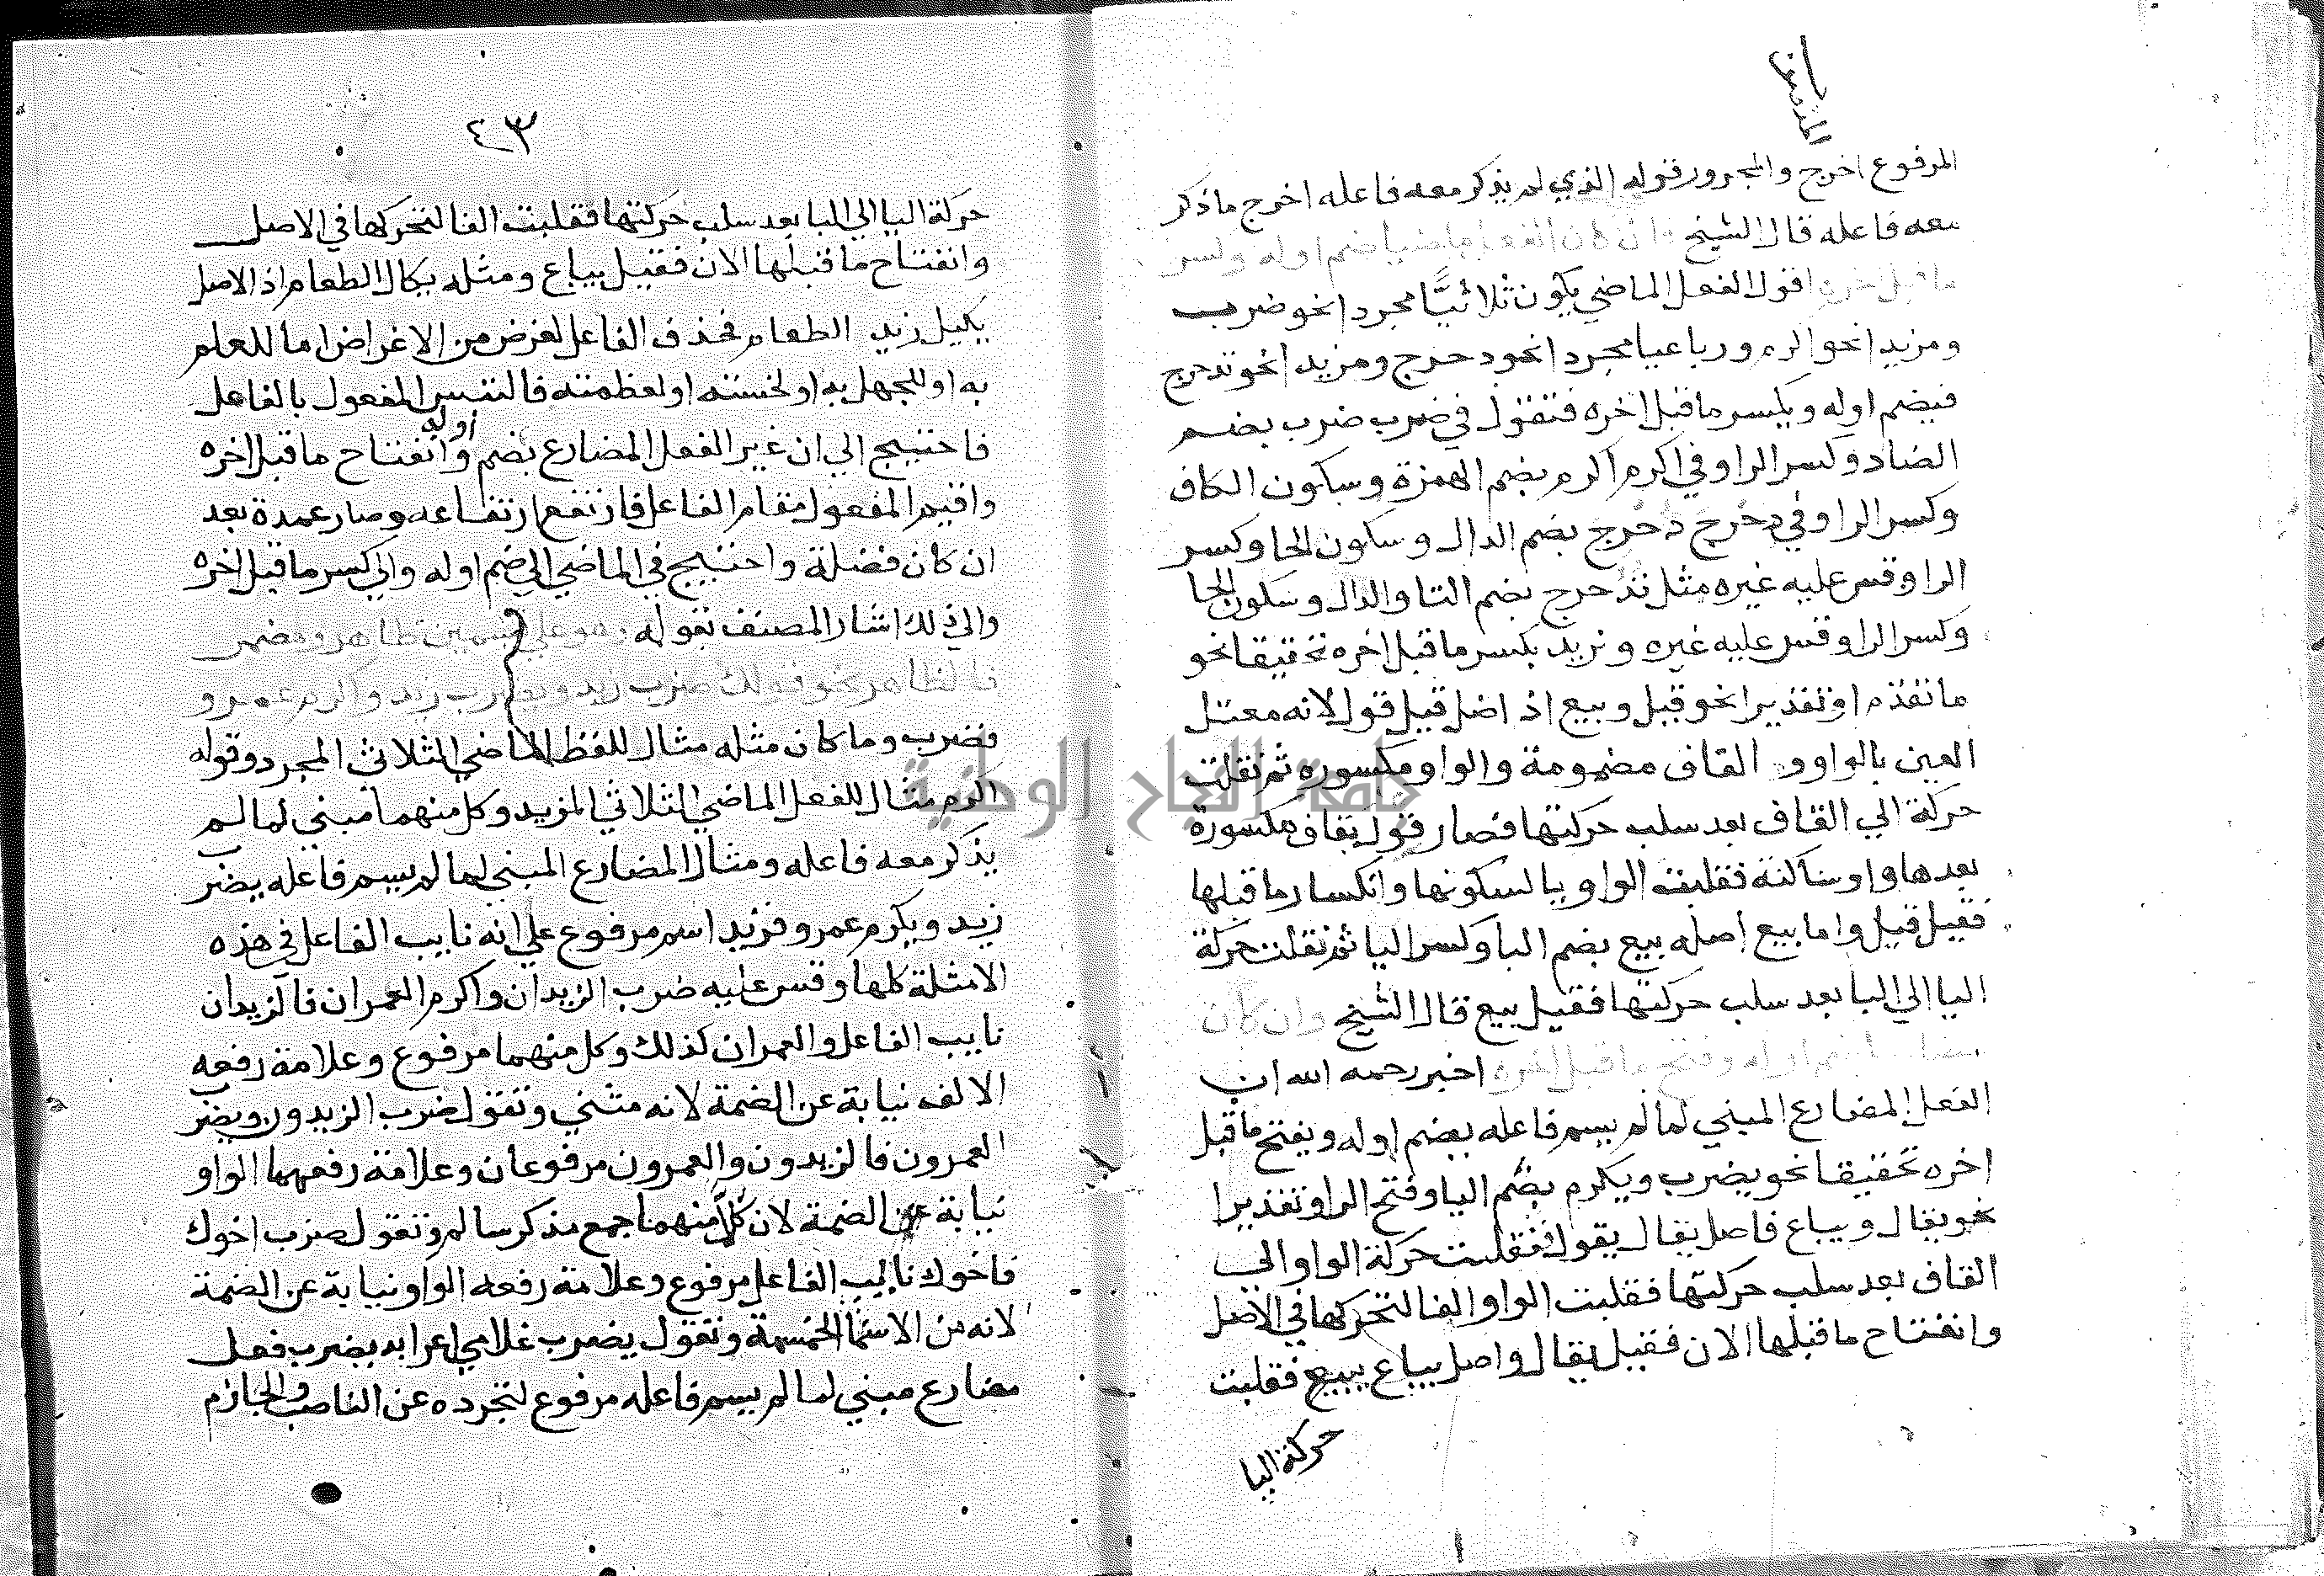 المرفوع اخرج والمجرور قوله الذي لم يذكر معه فاعله اخرج ما ذكر
معه فاعله قال الشيخ فان كان الفعل ماضيا ضم اوله وكسر
ما قبل اخره اقول الفعل الماضي يكون ثلاثيًّا مجردا نحو ضرب
ومزيدا نحو اكرم ورباعيا مجردا نحو دحرج ومزيدا نحو تدحرج
فيضم اوله ويكسر ما قبل اخره فتقول في ضرب ضرب بضم
الضاد وكسر الرا وفي اكرم اكرم بضم الهمزة وسكون الكاف
وكسر الرا وفي دحرج دحرج بضم الدال وسكون الحا وكسر
الرا وقس عليه غيره مثل تدحرج بضم التا والدال وسكون الحا
وكسر الرا وقس عليه غيره ونريد بكسر ما قبل اخره تحقيقا نحو
ما تقدم او تقديرا نحو قيل وبيع اذ اصل قيل قول لانه معتل
العين بالواو و القاف مضمومة والواو مكسوره ثم نقلت
حركة الي القاف بعد سلب حركتها فصار قول بقاف مكسورة
بعدها واو ساكنة فقلبت الواو يا لسكونها وانكسار ما قبلها
فقيل قيل واما بيع اصله بيع بضم البا وكسر اليا ثم نقلت حركة
اليا الي البا بعد سلب حركتها فقيل بيع قال الشيخ وان كان
مضارعا ضم اوله وفتح ما قبل اخره اخبر رحمه الله ان
الفعل المضارع المبني لما لم يسم فاعله يضم اوله ويفتح ما قبل
اخره تحقيقا نحو يضرب ويكرم بضم اليا وفتح الرا وتقديرا
نحو يقال ويباع فاصل يقال يقول فنقلت حركة الواو الي
القاف بعد سلب حركتها فقلبت الواو الفا لتحركها في الاصل
وانفتاح ما قبلها الان فقيل يقال واصل يباع يبيع فقلبت
حركة اليا
٤٣
حركة اليا الي البا بعد سلب حركتها فقلبت الفا لتحركها في الاصل
وانفتاح ما قبلها الان فقيل يباع ومثله يكال الطعام اذ الاصل
يكيل زيد الطعام فحذف الفاعل لغرض من الاغراض اما للعلم
به او للجهل به او لخسته او لعظمته فالتبس المفعول بالفاعل
فاحتيج الي ان غير الفعل المضارع بضم اوله وانفتاح ما قبل اخره
واقيم المفعول مقام الفاعل فارتفع ارتفاعه وصار عمدة بعد
ان كان فضلة واحتيج في الماضي الي ضم اوله والي كسر ما قبل اخره
والي ذلك اشار المصنف بقوله وهو علي قسمين ظاهر ومضمر
فالظاهر نحو قولك ضرب زيد ويضرب زيد واكرم عمرو
فضرب وما كان مثله مثال للفظ الماضي الثلاثي المجرد وقوله
اكرم مثال للفعل الماضي الثلاثي المزيد وكل منهما مبني لما لم
يذكر معه فاعله ومثال المضارع المبني لما لم يسم فاعله يضر
زيد ويكرم عمرو فزيد اسم مرفوع علي انه نايب الفاعل في هذه
الامثلة كلها وقس عليه ضرب الزيدان واكرم العمران فالزيدان
نايب الفاعل والعمران كذلك وكل منهما مرفوع وعلامة رفعه
الالف نيابة عن الضمة لانه مثني وتقول ضرب الزيدون ويضر
العمرون فالزيدون والعمرون مرفوعان وعلامة رفعهما الواو
نيابة عن الضمة لان كلًا منهما جمع مذكر سالم وتقول ضرب اخوك
فاخوك نايب الفاعل مرفوع وعلامة رفعه الواو نيابة عن الضمة
لانه من الاسما الخمسة وتقول يضرب غلامي اعرابه يضرب فعل
مضارع مبني لما لم يسم فاعله مرفوع لتجرده عن الناصب والجازم
جامعة النجاح الوطنية